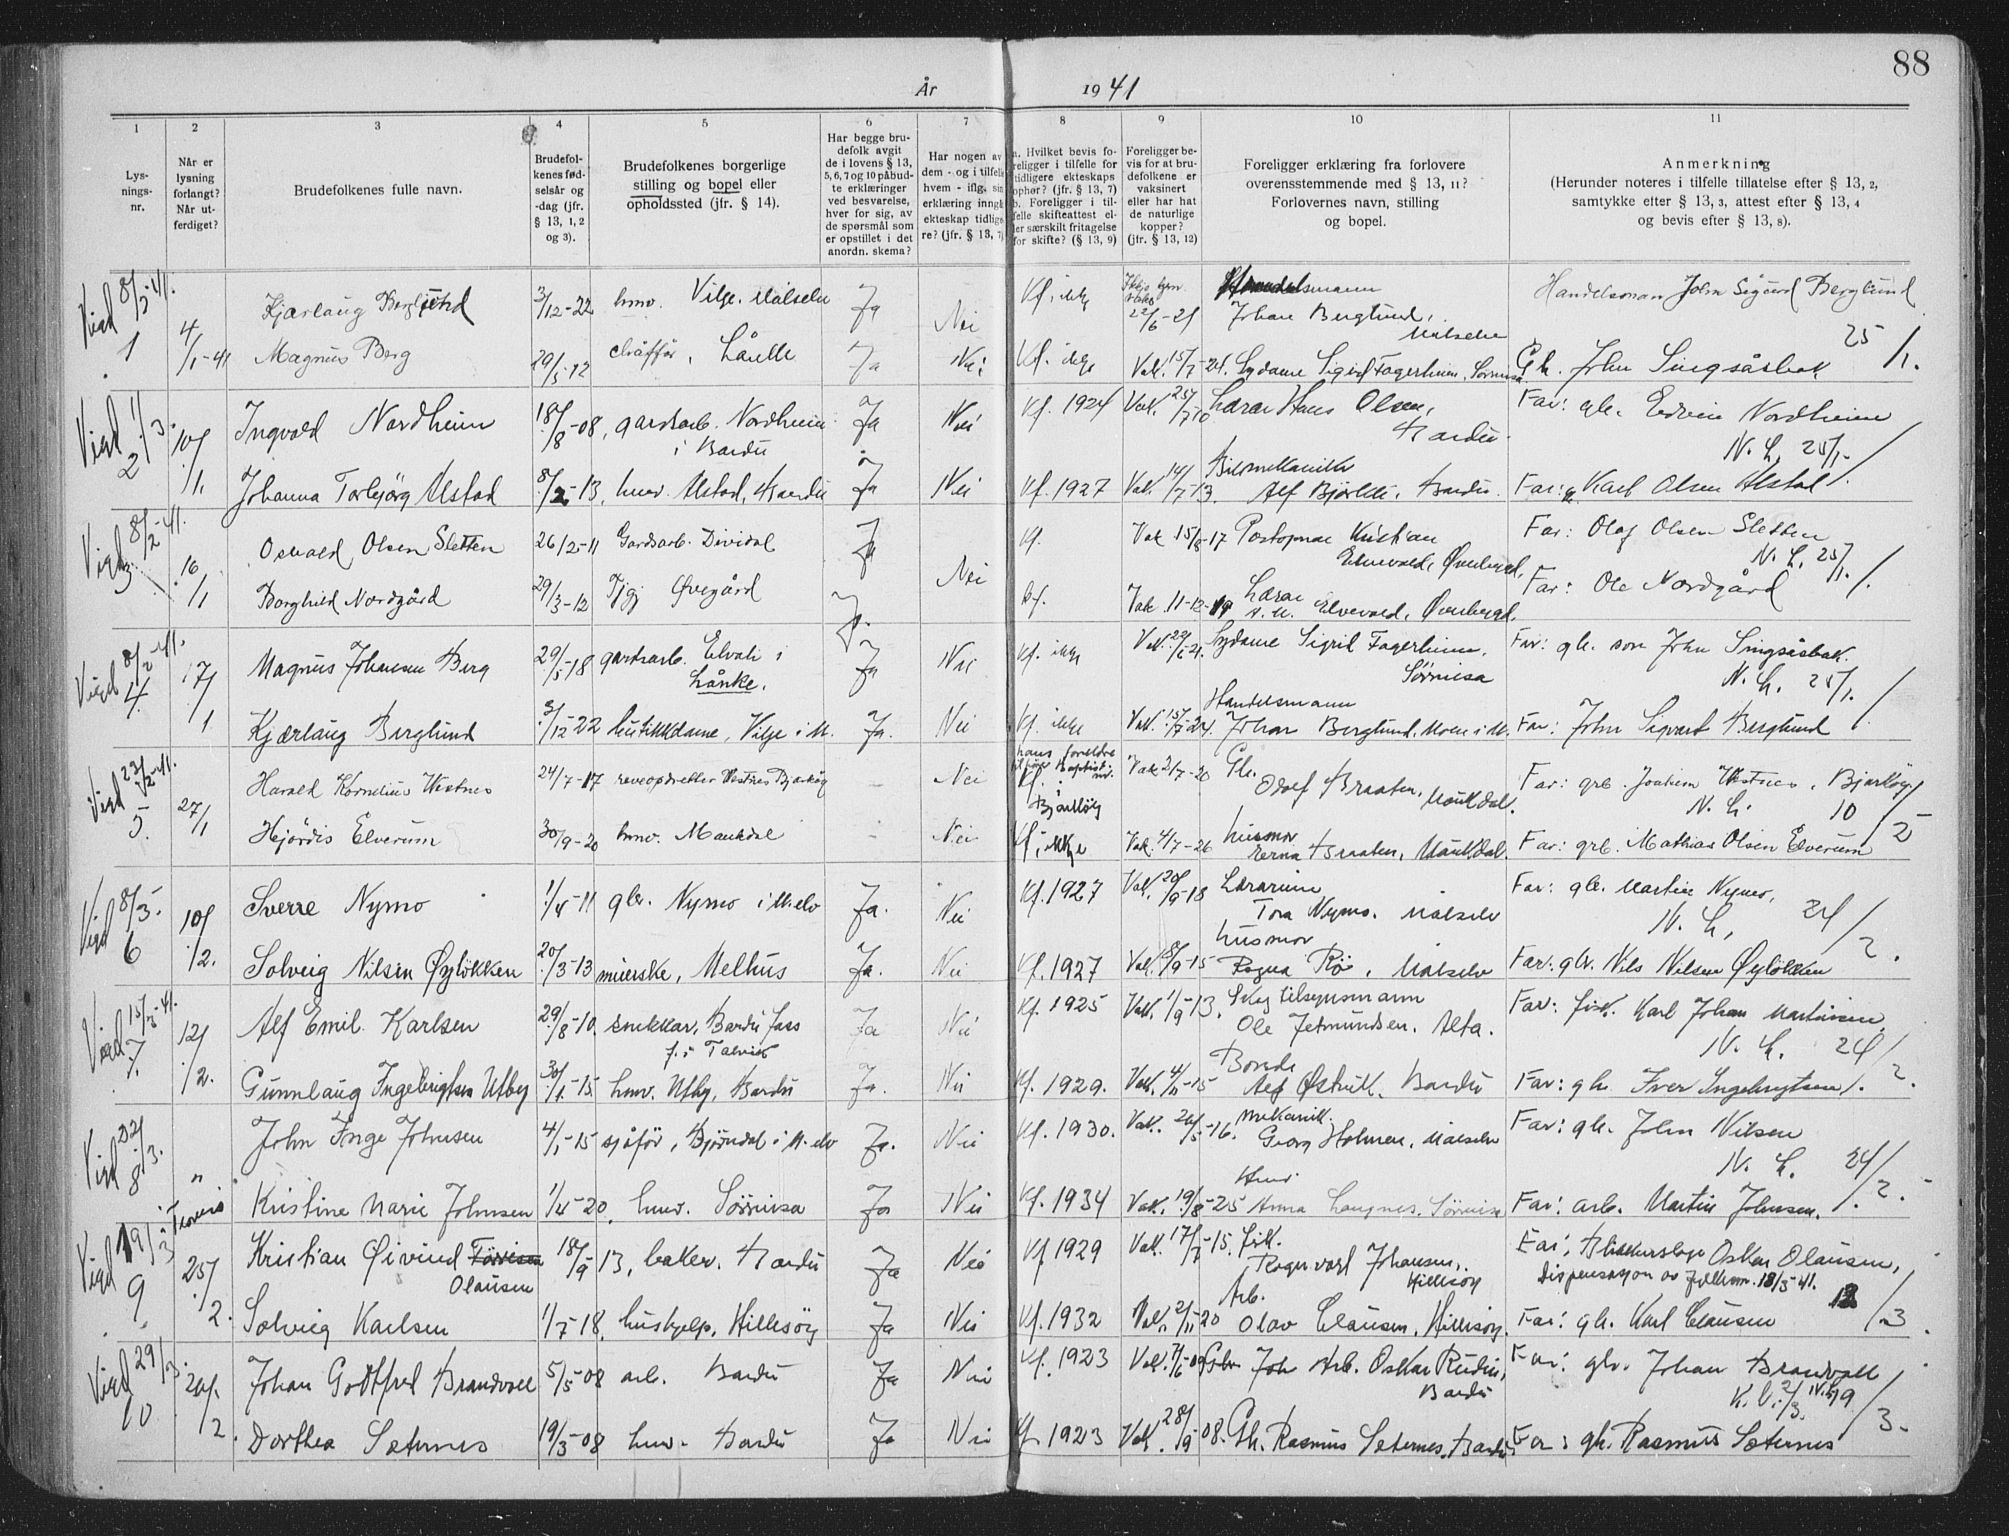 88
År 1941
1 2 3 4 5 6 7 8 9 10 11
Lys-
nings-
nr.
Når er
lysning
forlangt?
Når ut-
ferdiget?
Brudefolkenes fulle navn.
Brudefol-
kenes fød-
selsår og
-dag (jfr.
§ 13, 1, 2
og 3).
Brudefolkenes borgerlige
stilling og bopel eller
opholdssted (jfr. § 14).
Har begge bru-
defolk avgit
de i lovens § 13,
5, 6, 7 og 10 påbud-
te erklæringer
ved besvarelse,
hver for sig, av
de spørsmål som
er opstillet i det
anordn. skema?
Har nogen av
dem - og i tilfelle
hvem - iflg. sin
erklæring inngå
ekteskap tidlige
re? (jfr. § 13, 7)
a. Hvilket bevis fo-
religger i tilfelle for
tidligere ekteskaps
ophør? (jfr. § 13, 7)
b. Foreligger i til-
felle skifteattest el-
ler særskilt fritagelse
for skifte? (§ 13, 9)
Foreligger be-
vis for at bru-
defolkene er
vaksinert
eller har hat
de naturlige
kopper?
(jfr. § 13, 12)
Foreligger erklæring fra forlovere
overensstemmende med § 13, 11?
Forlovernes navn, stilling
og bopel.
Anmerkning
(Herunder noteres i tilfelle tillatelse efter § 13, 2,
samtykke efter § 13, 3, attest efter § 13, 4
og bevis efter § 13, 8).
Vigd 8/2-41.
1 4/1-41 Kjærlaug Berglund 3/12-22 hmv. Vilge. Målselv Ja Nei Kf. ikke 22/6-21 Johan Berglund, Målselv Handelsman John Sigurd Berglund
25/1.
Magnus Berg 29/5-12 Lånke Ja Nei Kf. ikke Vak. 15/7-24. Sydame Sigrid Fagerheim, Sørreisa Gb. John Singsåsbak
Vigd 1/3.
2 10/1. Ingvald Nordheim 18/8-08, gardsarb. Nordheim i Bardu Ja Nei Kf. 1924 Vak. 25/7-10 Lærar Hans Olsen, Bardu. Far: gbr. Edvin Nordheim
N. L. 25/1.
Johanna Torbjörg Alstad 8/2-13, hmv. Alstad, Bardu Ja Nei Kf. 1927 Vak. 14/7-13. Bilmekanikk Alf Bjørkli, Bardu. Far: Karl Olsen Alstad
Vigd 8/2-41.
3 16/1 Osvald Olsen Sletten 26/2-11 Gardsarb. Dividal Ja Kf. Vak 15/8-17 Postopnar Kristian Elvevold, Øverbygd. Far: Olaf Olsen Sletten
N. L. 25/1.
Borghild Nordgård 29/3-12 Øvergård Ja. Nei Kf. Vak 11-12-19 Lærar Elvevold, Øverbygd. Far: Ole Nordgård
Vigd 8/2-41.
4 17/1 Magnus Johansen Berg 29/5-18 gardsarb. Elvali i Lånke. Ja Nei Kf. ikke Vak. 29/6-21. Sydame Sigrid Fagerheim, Sörreisa Far: gb. son John Singsåsbak.
N. L. 25/1.
Kjærlaug Berglund 3/12 22 butikkdame, Vilge i M. Ja. Nei Kf. ikke Vak. 15/7-24. Handelsmann Johan Berglund, Moen i M. Far: John Sigvart Berglund
Vigd 22/2-41.
5. 27/1 Harald Kornelius Vestnes 24/7-17 reveopdretter Vestnes Bjarköy Nei Kf. Bjarköy Vak 2/7-20 Gb. Odolf Braaten, Maukdal. Far: grb. Joakim Vestnes, Bjarköy
N. L. 10/2
Hjördis Elverum 30/9-20 hmv. Maukdal Nei Kf. ikke Vak. 4/7-26 husmor Erna Braaten, Maukdal. Far: grb. Mathias Olsen Elverum
Vigd 8/3.-
6 10/2. Sverre Nymo 1/4-11 gbr. Nymo i M.elv Ja. Nei Kf. 1927 Vak. 20/9-18 Lærarinne Tora Nymo. Målselv Far: gb. Martin Nymo,
N. L, 24/2.
Solveig Nilsen Øyløkken 20/3-13 meierske, Melhus Ja. Nei Kf. 1927 Vak. 8/9-15 husmor Ragna Bö, Målselv Far: gbr. Nils Nilsen Øyløkken
Vigd 15/3-41.
7. 12/2. Alf Emil Karlsen 29/8-10. snikkar, Bardu foss f. i Talvik Ja Nei Kf. 1925 Vak. 1/9-13. Skogtilsynsmann Ole Jetmundsen. Alta. Far: fisk. Karl Johan Martinsen.
N. L. 24/2.
Gunnlaug Ingebrigtsen Utby 30/1-15. hmv. Utby, Bardu Ja. Nei Kf. 1929. Vak. 4/11-15 Bonde Alf Østvik. Bardu Far: gb. Iver Ingebrigtsen
Vigd 22/3.
8 " John Inge Johnsen 4/1-15 sjåför, Bjørndal i M.elv Ja. Nei Kf. 1930. Vak. 26/5-16. Mekanik. Georg Holmen, Målselv Far: gb. John Nilsen
N. L. 24/2.
Kristine Marie Johnsen 1/4-20, hmv. Sörreisa Ja Nei Kf. 1934 Vak. 19/8-25 Hmv Anna Langnes, Sörreisa Far: arb. Martin Johnsen.
Vigd 19/3 i Tromsö
9 25/2. Kristian Øivind Olausen 18/9-13, baker. Bardu Ja Nei Kf 1929 Vak. 17/7-15. fisk. Ragnvald Johansen, Hillesöy Far: Oskar Olausen,
Dispensasjon av fylkesm. 18/3-41.
12/3
Solveig Karlsen 1/7-18, hushjelp, Hillesöy Ja Nei Kf. 1932 Vak. 2/11-20 Arb. Olav Clausen, Hillesöy. Far: gb. Karl Clausen
Vigd 29/3.
10 20/2. Johan Gottfred Brandvoll 5/5-08 arb. Bardu Ja Nei Kf. 1923 Arb. Oskar Rudi, Bardu Far: gbr. Johan Brandvoll
19/3.
Dorthea Sæternes 19/3-08 hmv. Bardu Ja Nei Kf 1923 Vak. 28/9 08. Gb. Rasmus Sæternes, Bardu Far: gb. Rasmus Sæternes